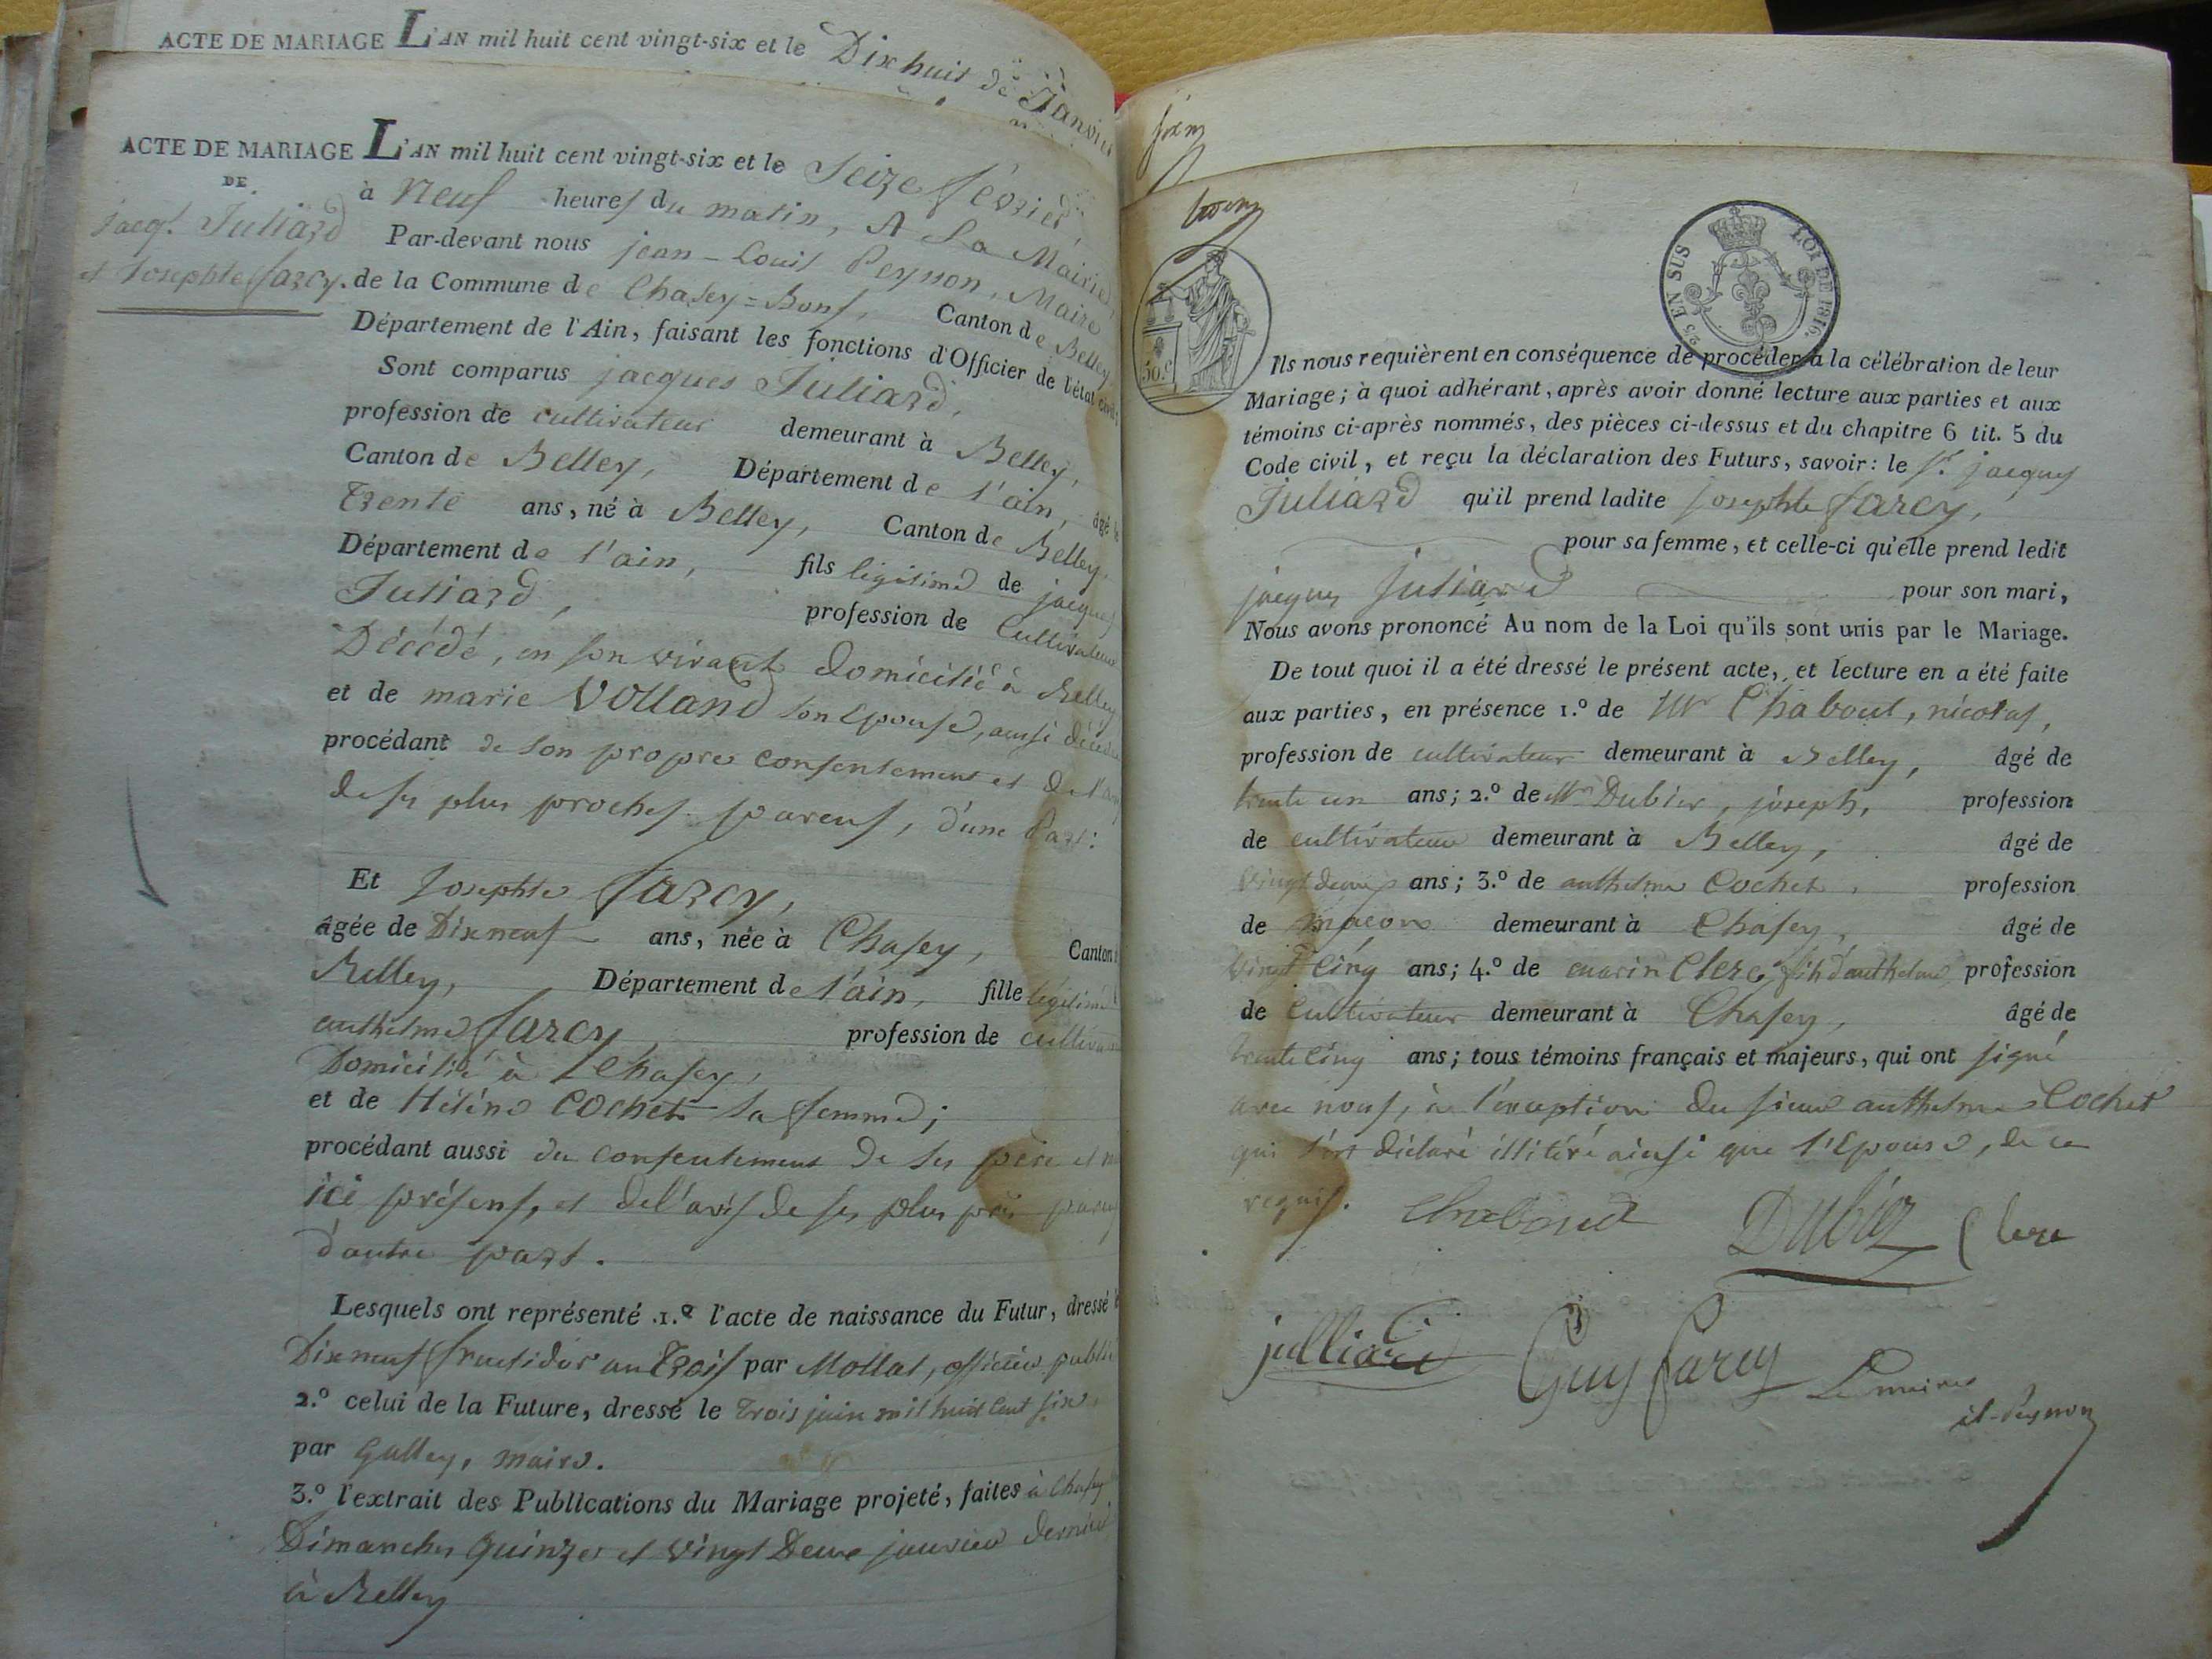 ACTE DE MARIAGE L'AN mil huit cent vingt-six et le Dix huit de Janvier
ACTE DE MARIAGE L'AN mil huit cent vingt-six et le Seize février,
DE
jacq.s Juliard
et Josephte farcy.
à neuf heures du matin, A La Mairie,
Par-devant nous jean-Louis Peysson, Maire
de la Commune de Chasey=Bons, Canton de Belley
Département de l'Ain, faisant les fonctions d'Officier de l'état civil;
Sont comparus jacques Juliard,
profession de cultivateur demeurant à Belley,
Canton de Belley, Département de l'ain, âgé de
Trente ans, né à Belley, Canton de Belley,
Département de l'ain, fils légitime de jacques
Juliard, profession de Cultivateur
Décédé, en son vivant domicilié à Belley
et de marie VOLLAND son Epouse, aussi décédée
procédant de son propre consentement et de l'avis
de ses plus proches parens, d'une Part:
Et Josephte farcy,
âgée de Dix neuf ans, née à Chasey, Canton
Belley, Département de l'ain, fille légitime
anthelme farcy, profession de cultivateur
Domicilié à Chasey,
et de Héléne COChet sa femme;
procédant aussi du consentement de ses père et
ici présens, et de l'avis de ses plus près parens
d'autre part.
Lesquels ont représenté 1.º l'acte de naissance du Futur, dressé
Dix neuf fructidor an Trois par Mollat, officier public
2.º celui de la Future, dressé le Trois juin mil huit Cent six,
par Gulley, maire.
3.º l'extrait des Publications du Mariage projeté, faites à Chasey
Dimanches quinze et vingt Deux janvier dernier
à Belley
30.c
2/5 EN SUS
LOI DE 1816.
Ils nous requièrent en conséquence de procéder à la célébration de leur
Mariage; à quoi adhérant, après avoir donné lecture aux parties et aux
témoins ci-après nommés, des pièces ci-dessus et du chapitre 6 tit. 5 du
Code civil, et reçu la déclaration des Futurs, savoir: le S.r jacques
Juliard qu'il prend ladite josephte farcy,
pour sa femme, et celle-ci qu'elle prend ledit
jacques Juliard pour son mari,
Nous avons prononcé Au nom de la Loi qu'ils sont unis par le Mariage.
De tout quoi il a été dressé le présent acte, et lecture en a été faite
aux parties, en présence 1.º de Mr Chaboud, nicolas,
profession de cultivateur demeurant à Belley, âgé de
trente un ans; 2.º de Mr Dubiez, joseph, profession
de cultivateur demeurant à Belley, âgé de
vingt deux ans; 3.º de anthelme Cochet, profession
de maçon demeurant à Chasey, âgé de
vingt Cinq ans; 4.º de marin Clerc, fils d'anthelme, profession
de Cultivateur demeurant à Chasey, âgé de
trente Cinq ans; tous témoins français et majeurs, qui ont signé
avec nous, à l'exception du sieur anthelme Cochet
qui s'est déclaré illitéré ainsi que l'Epouse, de ce
requis.
Chaboud Dubiez Clerc
julliard Guy farcy Le maire
jl-Peysson